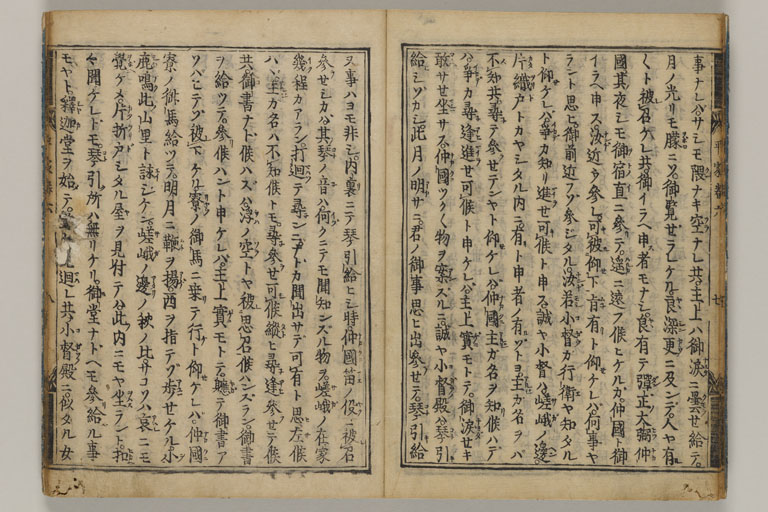 事ナレハサシモ隈ナキ空ナレ共主上ハ御涙ニ曇セ給テ
月ノ光リモ朧ニソ御覧セラレケル良深更ニ及ンテ人ヤ有
〱ト被召ケレ共御イラヘ申者モナシ良有テ弾正大弼仲
國其夜シモ御宿直ニ参テ遙ニ遠フ候ヒケルカ仲國ト御
イラヘ申ス汝近ウ参レ可被仰下旨有ト仰ケレハ何事ヤ
ラント思ヒ御前近フソ参シタル汝若小督カ行衛ヤ知タル
ト仰ケレハ争カ知リ進セ可候ト申ス誠ヤ小督ハ嵯峨ノ邊
片織戸トカヤシタル内ニ有ト申者ノ有ソトヨ主カ名ヲハ
不知共尋テ参セテンヤト仰ケレハ仲國主カ名ヲ知候ハテ
ハ争カ尋逢進セ可候ト申ケレハ主上實モトテ御涙セキ
敢サセ坐サス仲國ツク〱物ヲ案スルニ誠ヤ小督殿ハ琴引
給ヒシソカシ此月ノ明サニ君ノ御事思ヒ出参セテ琴引給
又事ハヨモ非シ内裏ニテ琴引給ヒシ時仲國笛ノ役ニ被召
参セシカハ其琴ノ音ハ何クニテモ聞知ンスル物ヲ嵯峨ノ在家
幾程カアラン打廻テ尋ンニナトカ聞出サテ可有ト思左候
ハハ主カ名ハ不知候トモ尋参セ可候縦ヒ尋逢参セテ候
共御書ナト候ハスハ浮ノ空トヤ被思召候ハンスラン御書
ヲ給ツテ参候ハント申ケレハ主上實モトテ軈テ御書ア
ソハヒテソ被下ケル寮ノ御馬ニ乗テ行ト仰ケレハ仲國
寮ノ御馬給ツテ明月ニ鞭ヲ揚西ヲ指テソ歩セケル小
鹿鳴此山里ト詠シケン嵯峨ノ邊ノ秋ノ比サコソハ哀ニモ
覺ケメ片折戸シタル屋ヲ見付テハ此内ニモヤ坐ラント扣
〱聞ケレトモ琴引所ハ無リケル御堂ナトヘモ参給ル事
モヤト釋迦堂ヲ始テ廻レ共小督殿ニ似タル女
平家巻六